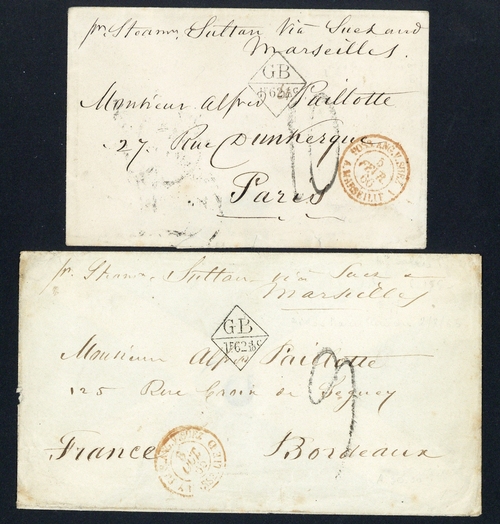 pr. Steamr. Sultan Via Suez and
Marseilles.
GB
1F62 4/10C
Monsieur Alfred Paillotte
27, Rue Dunkerque
Paris
10
5
FEVR.
60
pr. Steamr. Sultan via Suez &
Marseilles.
GB
1F62 4/10C
Monsieur Alfred Paillotte
125 Rue Croix de Seguey
France Bordeaux